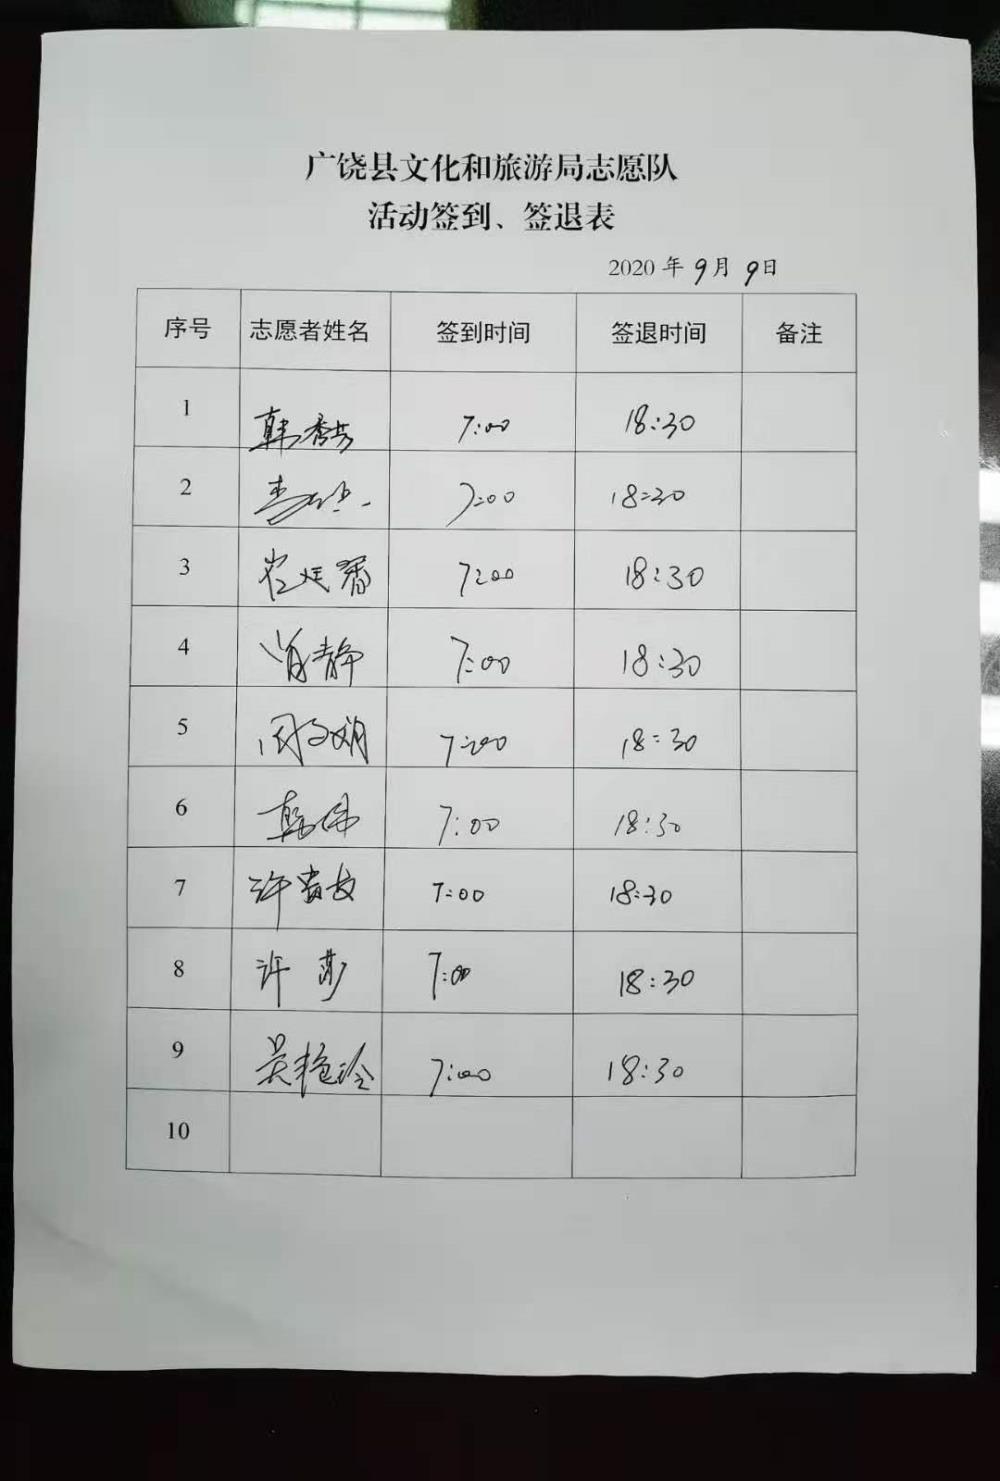 广饶县文化和旅游局志愿队
活动签到、签退表
2020年9月9日
序号 志愿者姓名 签到时间 签退时间 备注
1 韩秀芸 7:00 18:30
2 7:00 18:30
3 崔廷香 7:00 18:30
4 肖静 7:00 18:30
5 周文娟 7:00 18:30
6 韩伟 7:00 18:30
7 许 7:00 18:30
8 许莎 7:00 18:30
9 吴艳玲 7:00 18:30
10